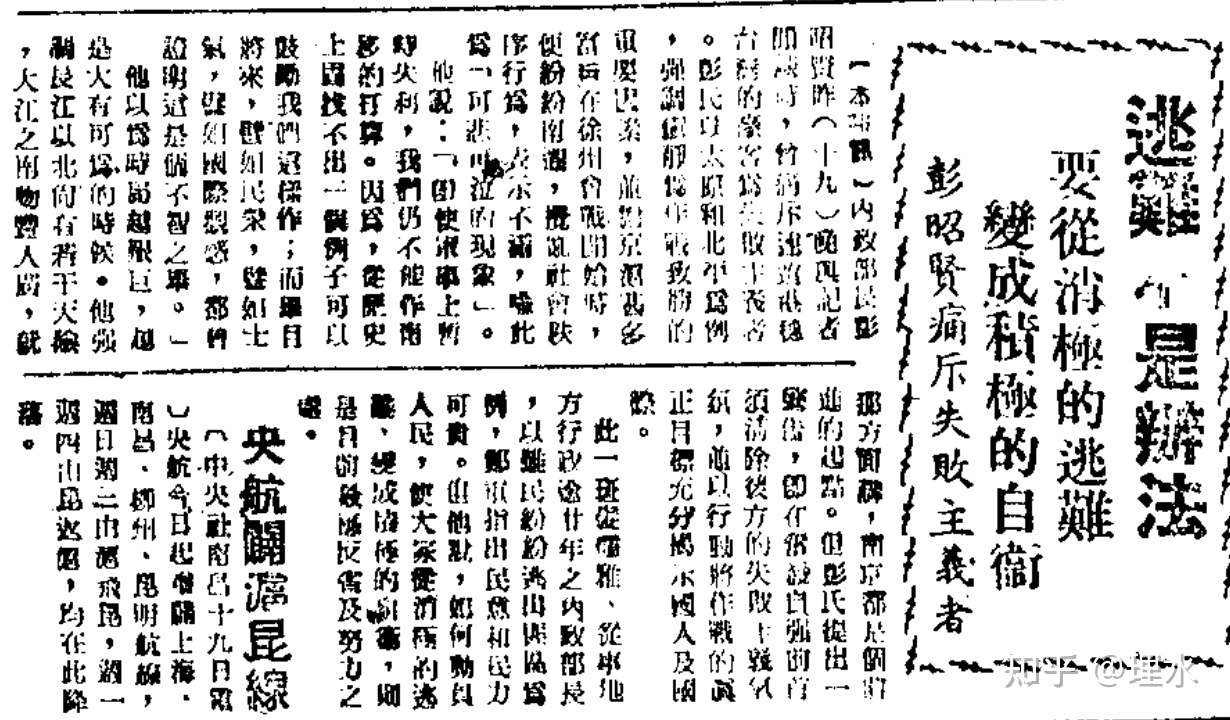 逃難不是辦法
要從消極的逃難
變成積極的自衞
彭昭賢痛斥失敗主義者
【本報訊】內政部長彭
昭賢昨（十九）晚與記者
時，曾痛斥逃港穗
台灣的豪客為失敗主義者
。彭氏以太原和北平為例
，強調鎮靜為作戰致勝的
重要因素，並對京滬甚多
富戶在徐州會戰開始時，
便紛紛南遷，擾亂社會秩
序行為，表示不滿，喩此
為「可悲可泣的現象」。
他說：「卽使軍事上暫
時失利，我們仍不能作南
移的打算。因為，從歷史
上固找不出一個例子可以
鼓勵我們這樣作；而舉目
將來，譬如民衆，譬如士
氣，譬如國際觀感，都會
證明這是個不智之舉。」
他以為時局越艱巨，越
是大有可為的時候。他强
調長江以北尙有若干天險
，大江之南物豐人廣，就
那方面講，南京都是個前
進的起點。但彭氏提出一
警告，卽在奮發自强前首
須清除後方的失敗主義氣
氛，並以行動將作戰的眞
正目標充分揭示國人及國
際。
此一斑從儒雅、從事地
方行政達廿年之內政部長
，以難民紛紛逃出區為
例，鄭重指出民意和民力
可貴。但他默，如何動員
人民，使大家從消極的逃
難，變成積極的自衞，則
是目前最應反省及努力之
處。
央航闢滬昆線
（中央社南昌十九日電
）央航今日起增闢上海、
南昌、柳州、昆明航線，
週日週二由滬飛昆，週一
週四由昆返滬，均在此降
落。
知乎 @理水